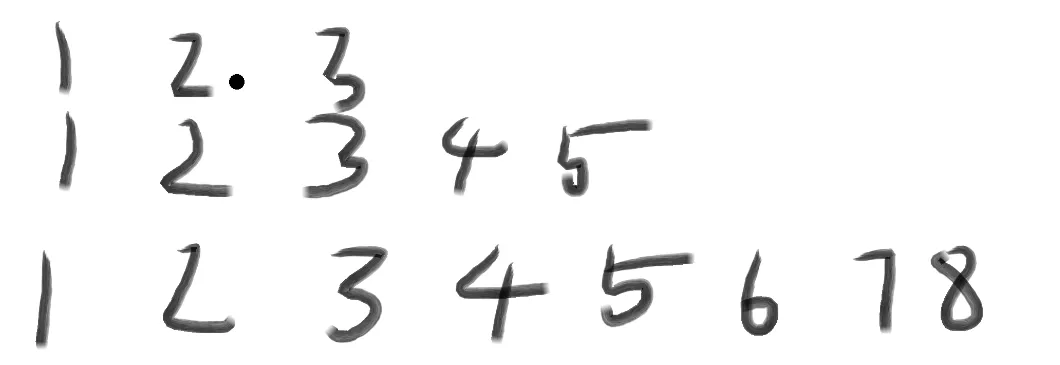 1 2. 3
1 2 3 4 5
1 2 3 4 5 6 7 8